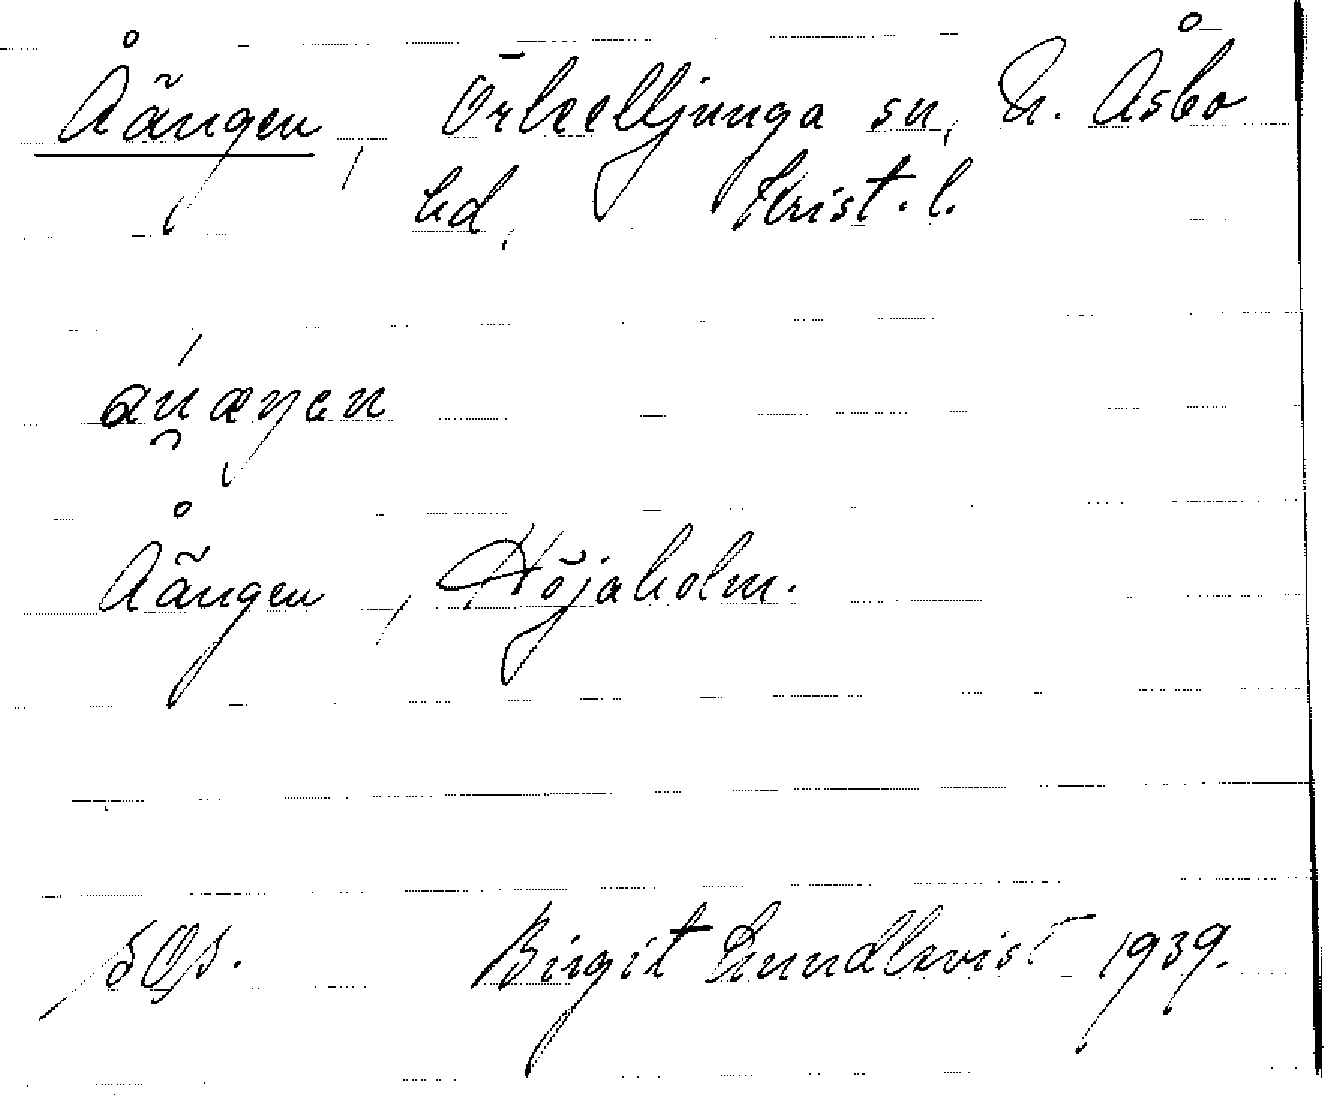 Åängen, Örkelljunga sn, N. Åsbo
hd, Krist. l.
Åängen, Höjaholm.
Birgit Lundkvist 1939.